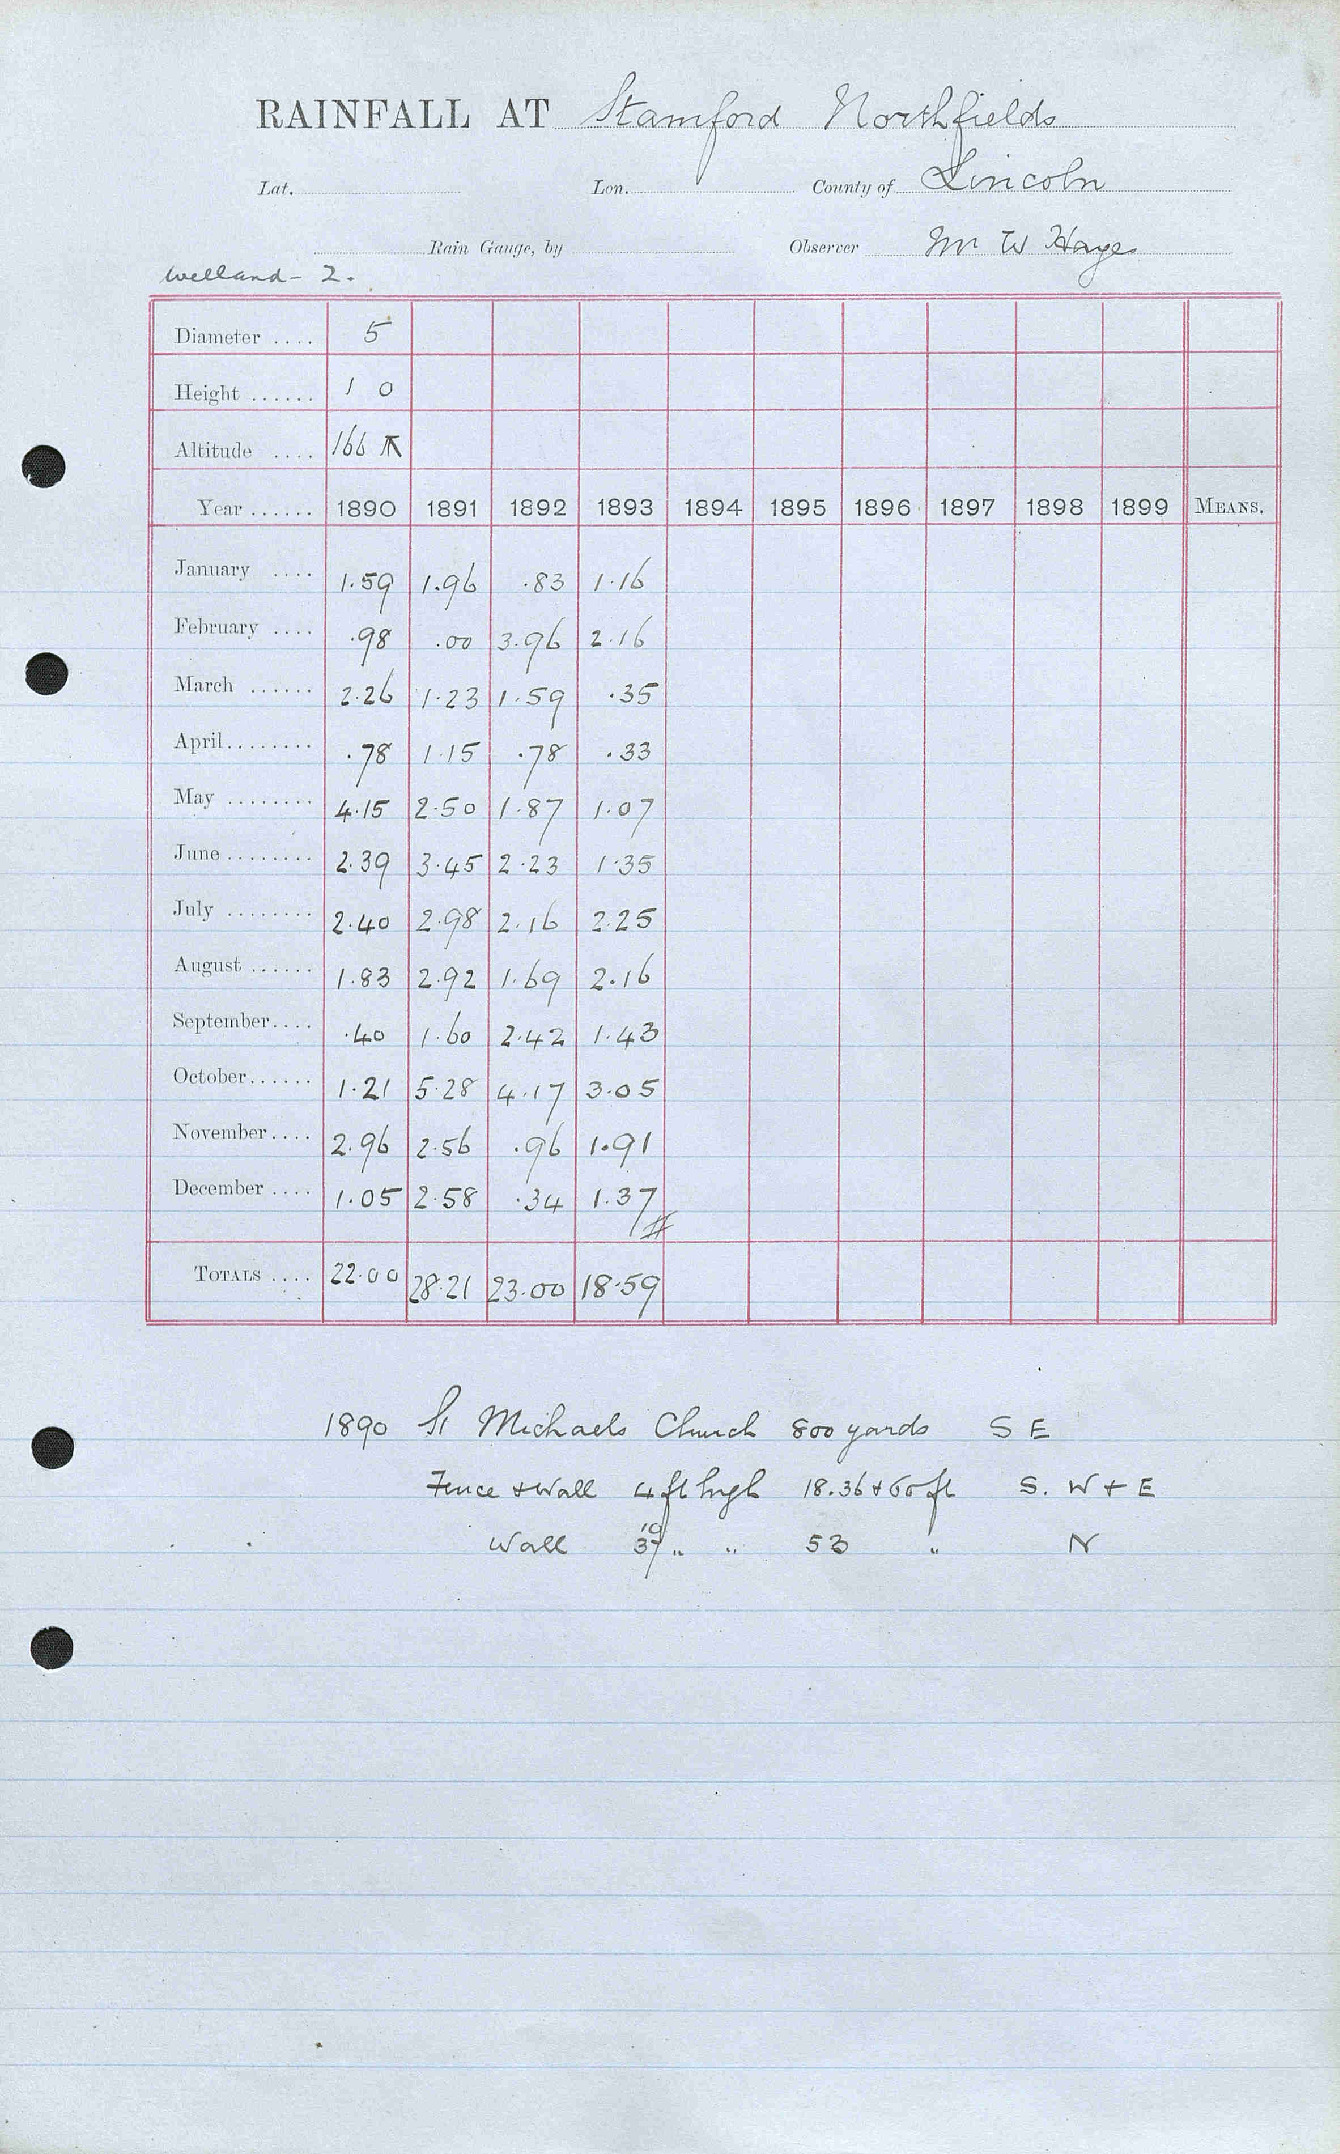 RAINFALL AT Stamford Northfields
Lat. Lon. County of Lincoln
Rain Gauge, by Observer Mr W Hayes
Welland - 2.
Diameter .... 5
Height ...... 1 0
Altitude .... 166
Year ...... 1890 1891 1892 1893 1894 1895 1896 1897 1898 1899 MEANS.
January .... 1.59 1.96 .83 1.16
February .... .98 .00 3.96 2.16
March ...... 2.26 1.23 1.59 .35
April........ .78 1.15 .78 .33
May ........ 4.15 2.50 1.87 1.07
June ........ 2.39 3.45 2.23 1.35
July ........ 2.40 2.98 2.16 2.25
August ...... 1.83 2.92 1.69 2.16
September.... .40 1.60 2.42 1.43
October...... 1.21 5.28 4.17 3.05
November.... 2.96 2.56 .96 1.91
December .... 1.05 2.58 .34 1.37
TOTALS .... 22.00 28.21 23.00 18.59
1890 St Michaels Church 800 yards S E
Fence + Wall 4 ft high 18.36 + 60 ft S. W + E
Wall 10 " " 53 " N